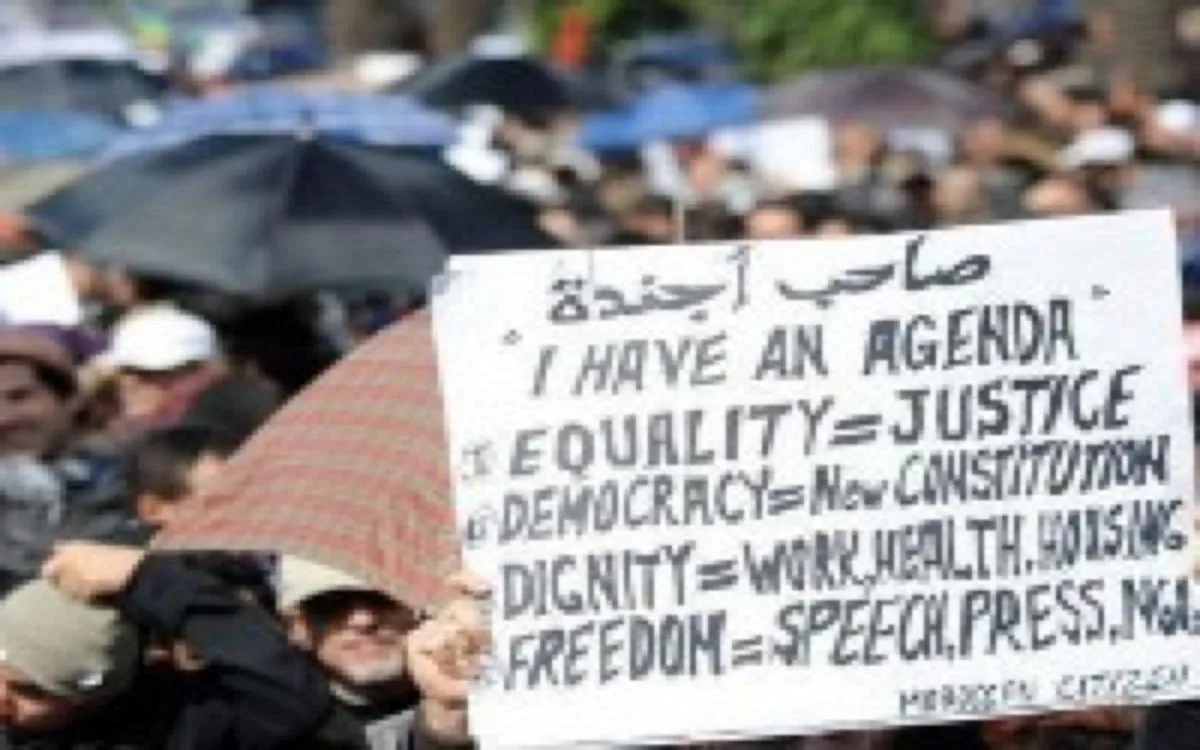 صاحب أجندة
"I HAVE AN AGENDA"
EQUALITY=JUSTICE
DEMOCRACY=New CONSTITUTION
DIGNITY=WORK,HEALTH,HOUSING
FREEDOM=SPEECH,PRESS,NGA
MOROCCEN CITYZEN